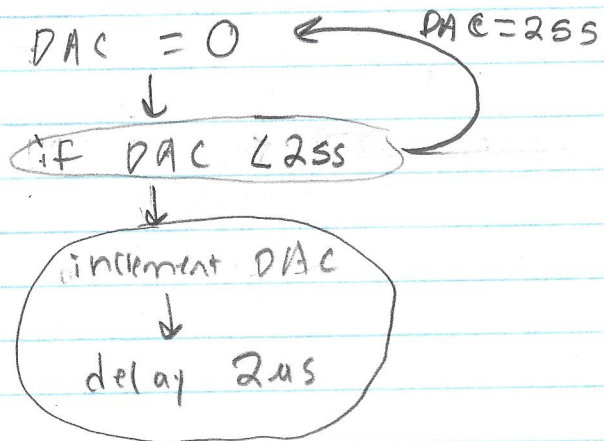 DAC = 0
DAC=255
if DAC < 255
increment DAC
delay 2us